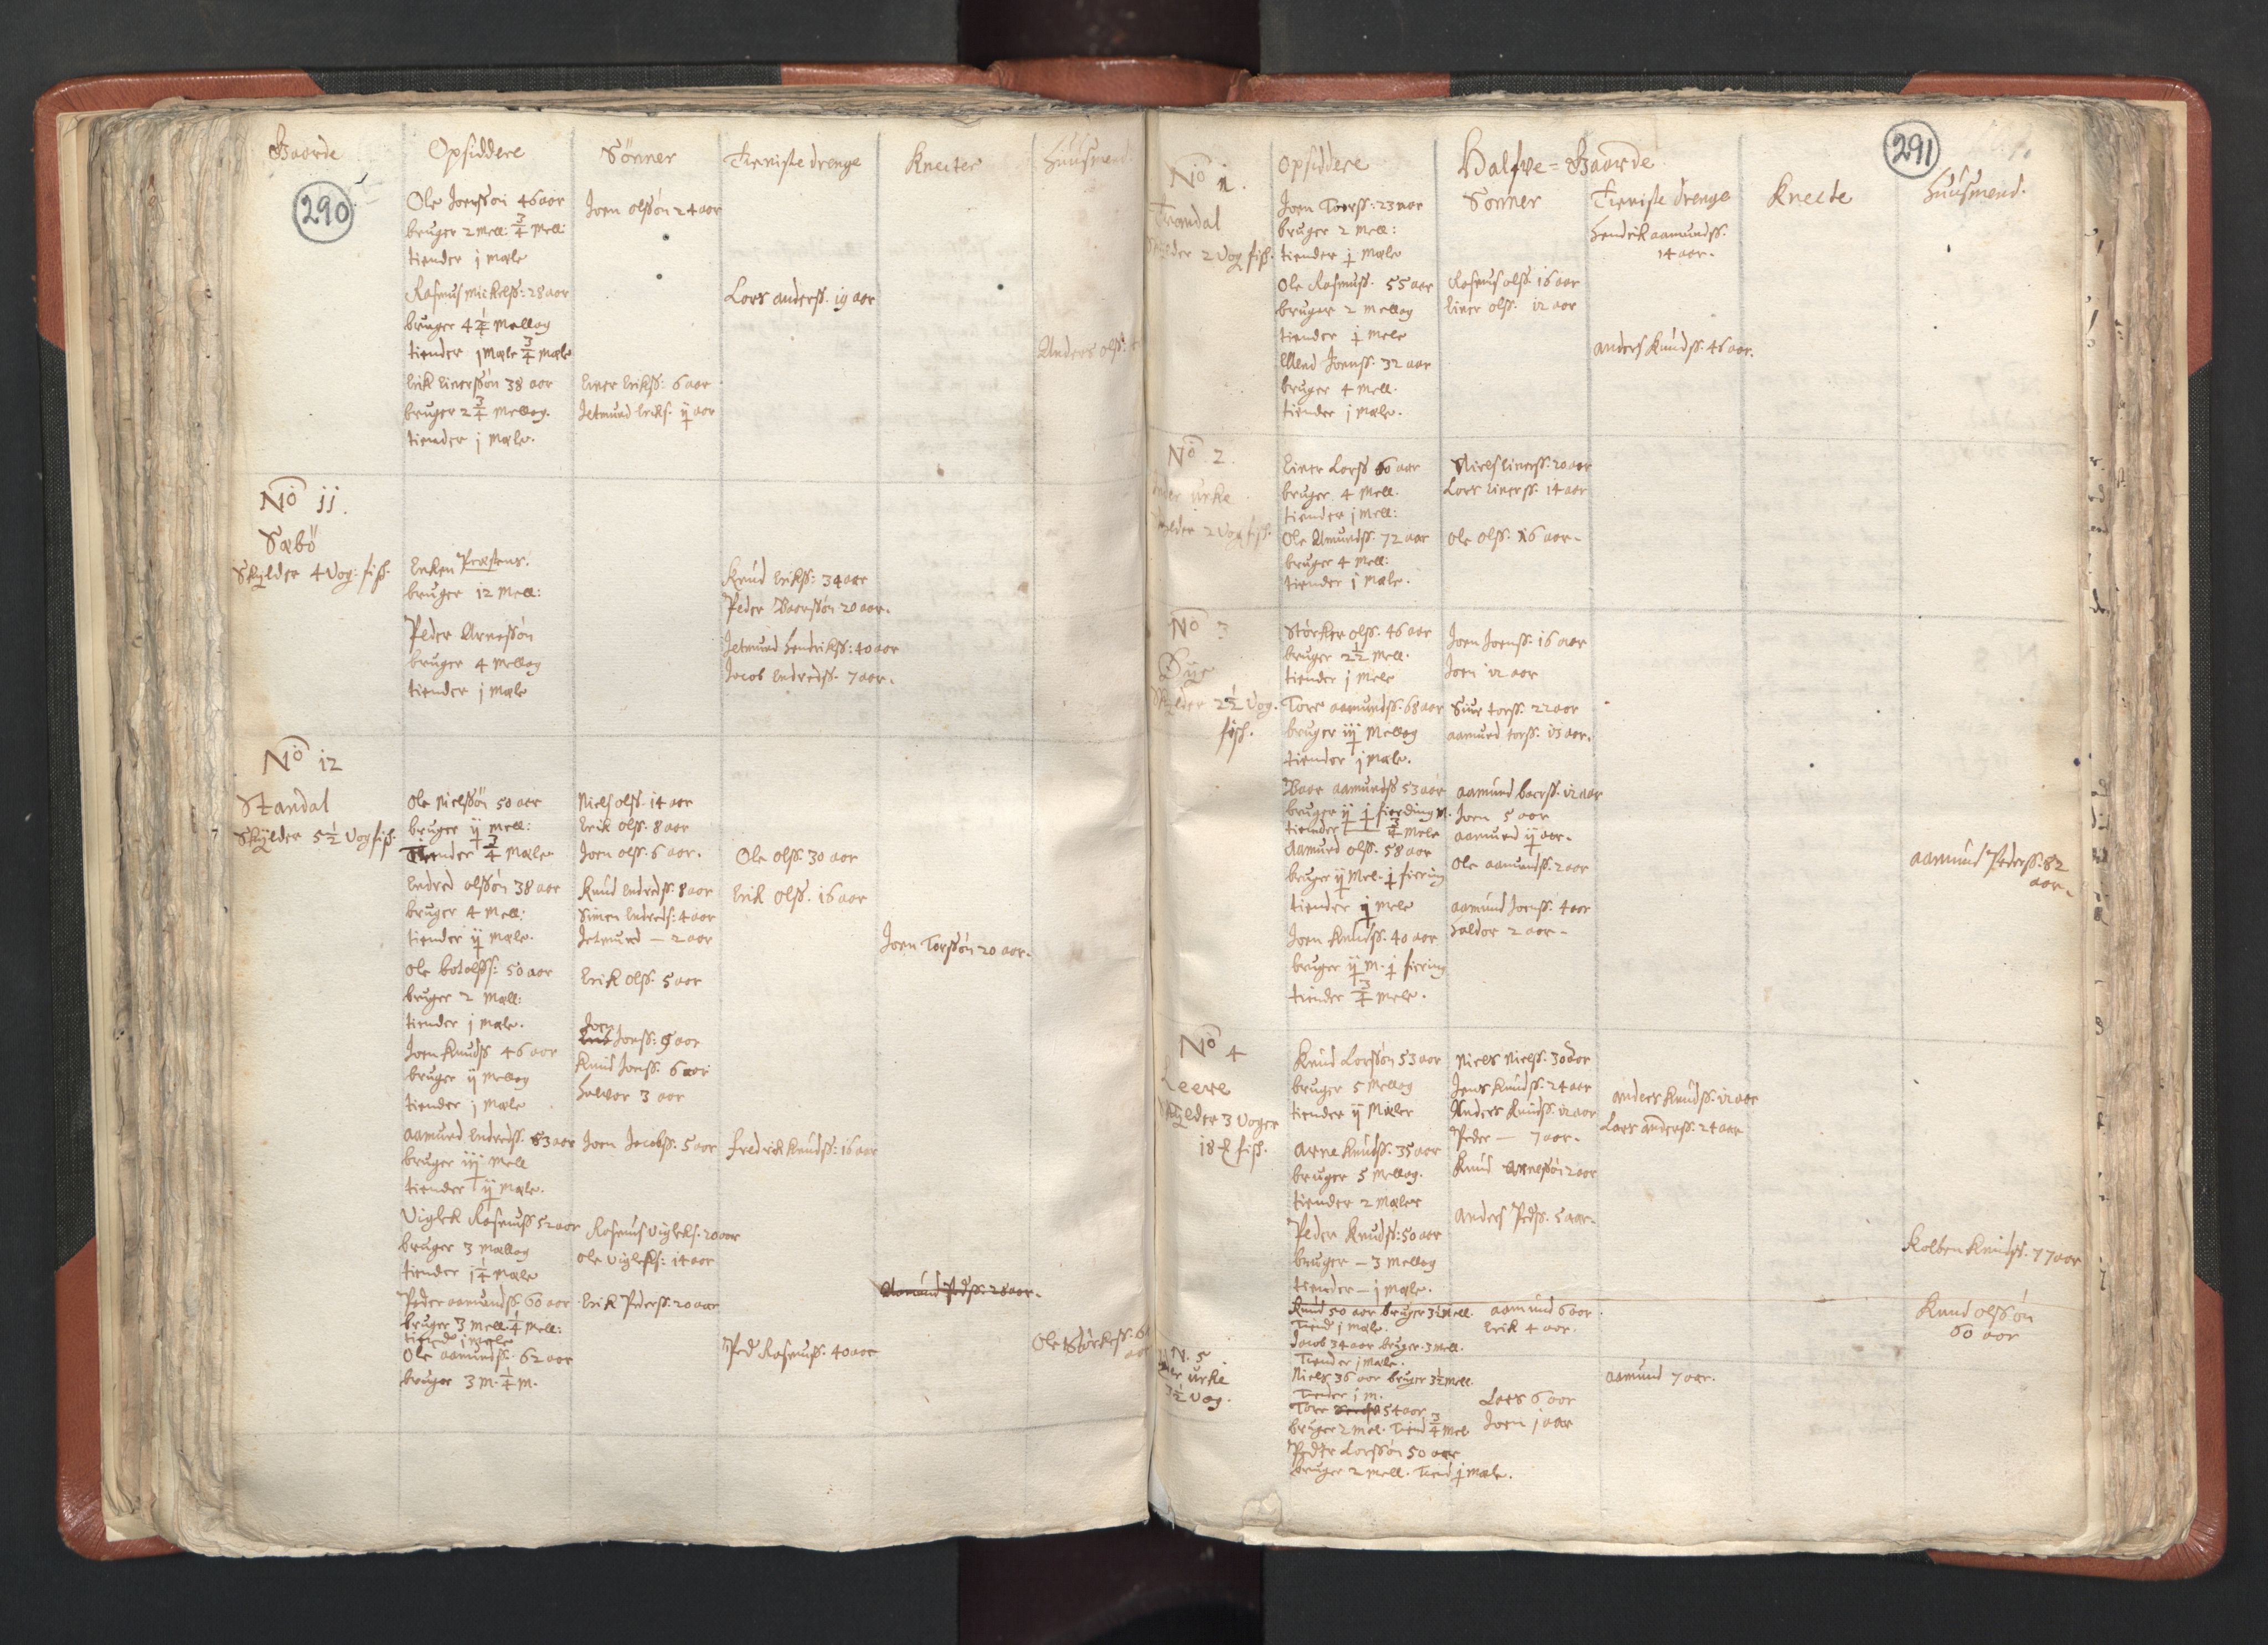 290
Gaarde
Opsiddere
Sønner
Tieniste drenge
Knecter
Huusmend.
Ole Joenssøn 46 aar
bruger 2 mell: 3/4 mell:
tiender j mæle
Joen olssøn 24 aar
Rasmus mickelss: 28 aar
bruger 4 1/4 mellog
tiender j mæle 3/4 mæle
Lars anderss. 19 aar
Anders olss:
Erik Einerssøn 38 aar
bruger 2 3/4 mellog.
tiender j mæle.
Einer Erikss: 6 aar
Jetmund Eriks. ij aar
No jj.
Sæbö
Skylder 4 Vog: fisk.
Enken Præstens.
bruger 12 mell:
Knud Erikss: 34 aar
Peder Baarssøn 20 aar.
Peder Arnessøn
bruger 4 mellog
tiender j mæle
Jetmund Hendrikss: 40 aar
Jacob Endredss. 7 aar.
No 12
Standal
Skylder 5 1/2 Vog fisk.
Ole Nielssøn 50 aar
bruger ij mell:
Tiender 3/4 mæle
Niels olss. 14 aar
Erik olss. 8 aar
Joen olss. 6 aar.
Ole olss. 30 aar
Endred olssøn 38 aar
bruger 4 mell:
tiender ij mæle.
Knud Endredss. 8 aar
Simen Endreds: 4 aar
Jetmund — 2 aar
Erik olss. 16 aar
Joen Torssøn 20 aar.
Ole botolfss: 50 aar
bruger 2 mæll:
tiender j mæle.
Erik olss. 5 aar
Joen Knudss 46 aar
bruger ij mellog
tiender j mæle
Joen
Jonss: 9 aar
Knud Jonss. 6 aar
Halvor 3 aar
Aamund Endredss. 53 aar
bruger iij mell
tiender ij mæle.
Joen Jacobss. 5 aar
fredrik Knudss: 16 aar
Viglek Rasmuss 52 aar
bruger 3 mællog
tiender 1 1/4 mæle
Rasmus Vigleks. 20 aar
Ole Vigleks: 14 aar
Peder aamundss. 60 aar
bruger 3 mell. 1/4 mell:
tiend j mæle
Erik Pederss. 20 aar
Aamund Pedss. 28 aar.
Ole aamundss. 62 aar
bruger 3 m. 1/4 m.
Ped Rasmuss. 40 aar
Ole Størkess:
291
Halfve = Gaarde
No 1.
Opsiddere
Sønner
Tieniste drenge
Knecte
Huusmend.
Trandal
Skylder 2 Vog fisk.
Joen Torss: 23 aar
bruger 2 mell:
tiender j mæle
Hendrik aamundss.
14 aar.
Ole Rasmuss. 55 aar
bruger 2 mellog
tiender j mele
Rasmus olss. 16 aar
Einer olss. 12 aar
Anders Knudss. 46 aar.
Joenss: 32 aar
bruger 4 mell.
tiender j mæle.
No 2.
urke
Skylder 2 Vog fisk.
Einer Larss 60 aar
bruger 4 mell.
tiender j mell:
Niels Einerss: 20 aar
Lars Einerss. 14 aar
Ole Amundss. 72 aar
bruger 4 mell:
tiender j mæle.
Ole olss. 16 aar.
No 3
Øye
Skylder 2 1/2 Vog.
fisk.
Størker olss. 46 aar
bruger 2 1/2 mell.
tiender j mele
Joen Joenss: 16 aar
Joen 12 aar
Tore aamundss. 68 aar
bruger iij mellog
tiender j mæle.
Siur torss. 22 aar
aamund torss. 13 aar.
Baar aamundss 53 aar
bruger ij j fierding m.
tiender 3/4 mele
aamund baarss. 12 aar
Joen 5 aar
aamund ij aar.
Aamund olss. 58 aar
bruger ij mel. j fiering
tiender j mele
Ole aamundss. 2 aar
aamund Pederss. 82
aar.
Joen Knudss. 40 aar
bruger ij m. j fiering
tiender 3/4 mele.
aamund Joenss. 4 aar
Haldor 2 aar.
No 4
Leere
Skylder 3 Voger
18 fisk.
Knud Larssøn 53 aar
bruger 5 mellog
tiender ij mæler
Niels Nielss. 30 aar
Jens Knudss. 24 aar
Anders Knudss. 12 aar
Peder — 7 aar.
anders Knudss. 12 aar
Lars anderss. 24 aar
Arne Knudss. 35 aar
bruger 5 mellog.
tiender 2 mæler
Knud Arnessøn 2 aar
Peder Knudss: 50 aar
bruger — 3 mellog
tiender — j mæle.
Anders Pedss. 5 aar.
Kolben Knudss. 77 aar
N. 5
urke
3 1/2 Vog.
Knud 50 aar bruger 3 1/2 mell.
Tiend j mæle.
aamund 6 aar.
Erik 4 aar.
Knud olssøn
60 aar
Jacob 34 aar bruger. 3 mell.
Tiender j mæle.
Niels 36 aar bruger 3 1/2 mell.
Tiender j m.
aamund 7 aar.
Tore 54 aar
bruger 2 mel. Tiend 3/4 mel
Lars 6 aar
Joen j aar
Peder Larssøn 50 aar
bruger 2 mell. Tiend j mæle.